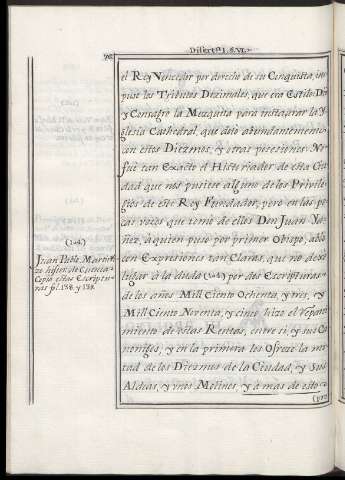 Dissert.n I. §. VI.
el Rey Vencedor por derecho de su Conquista, im-
puso los Tributos Dezimales, que era Estilo. Dió
y Consagró la Mezquita para instaurar la Y-
glesia Cathedral, que dotó abundantemente
con estos Diezmos, y otras posesiones. No
fué tan Exacto el Historiador de esta Ciu-
dad que nos pusiere alguno de los Privile-
gios de este Rey Fundador, pero en las po-
cas voces que tomó de ellos Don Juan Ya-
ñez, á quien puso por primer Obispo, abló
con Expresiones tan Claras, que no dexó
lugar á la duda (124) por dos Escripturas
de los años Mill Ciento Ochenta, y tres, y
Mill Ciento Noventa, y cinco hizo el repati-
miento de estas Rentas, entre si, y sus Ca-
nonigos, y en la primera los Ofreze la mi-
tad de los Diezmos de la Ciudad, y sus
Aldeas, y unos Molinos, y á mas de esto
(124)
Juan Pablo Martir
histor. de Cuenca
Copia estas Escriptu-
ras fol. 138. y 139.